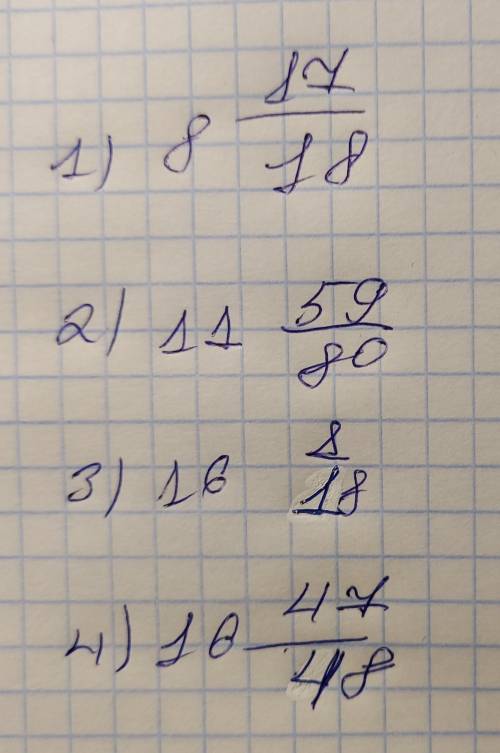 1) 8 17/18
2) 11 59/80
3) 16 1/18
4) 16 47/48